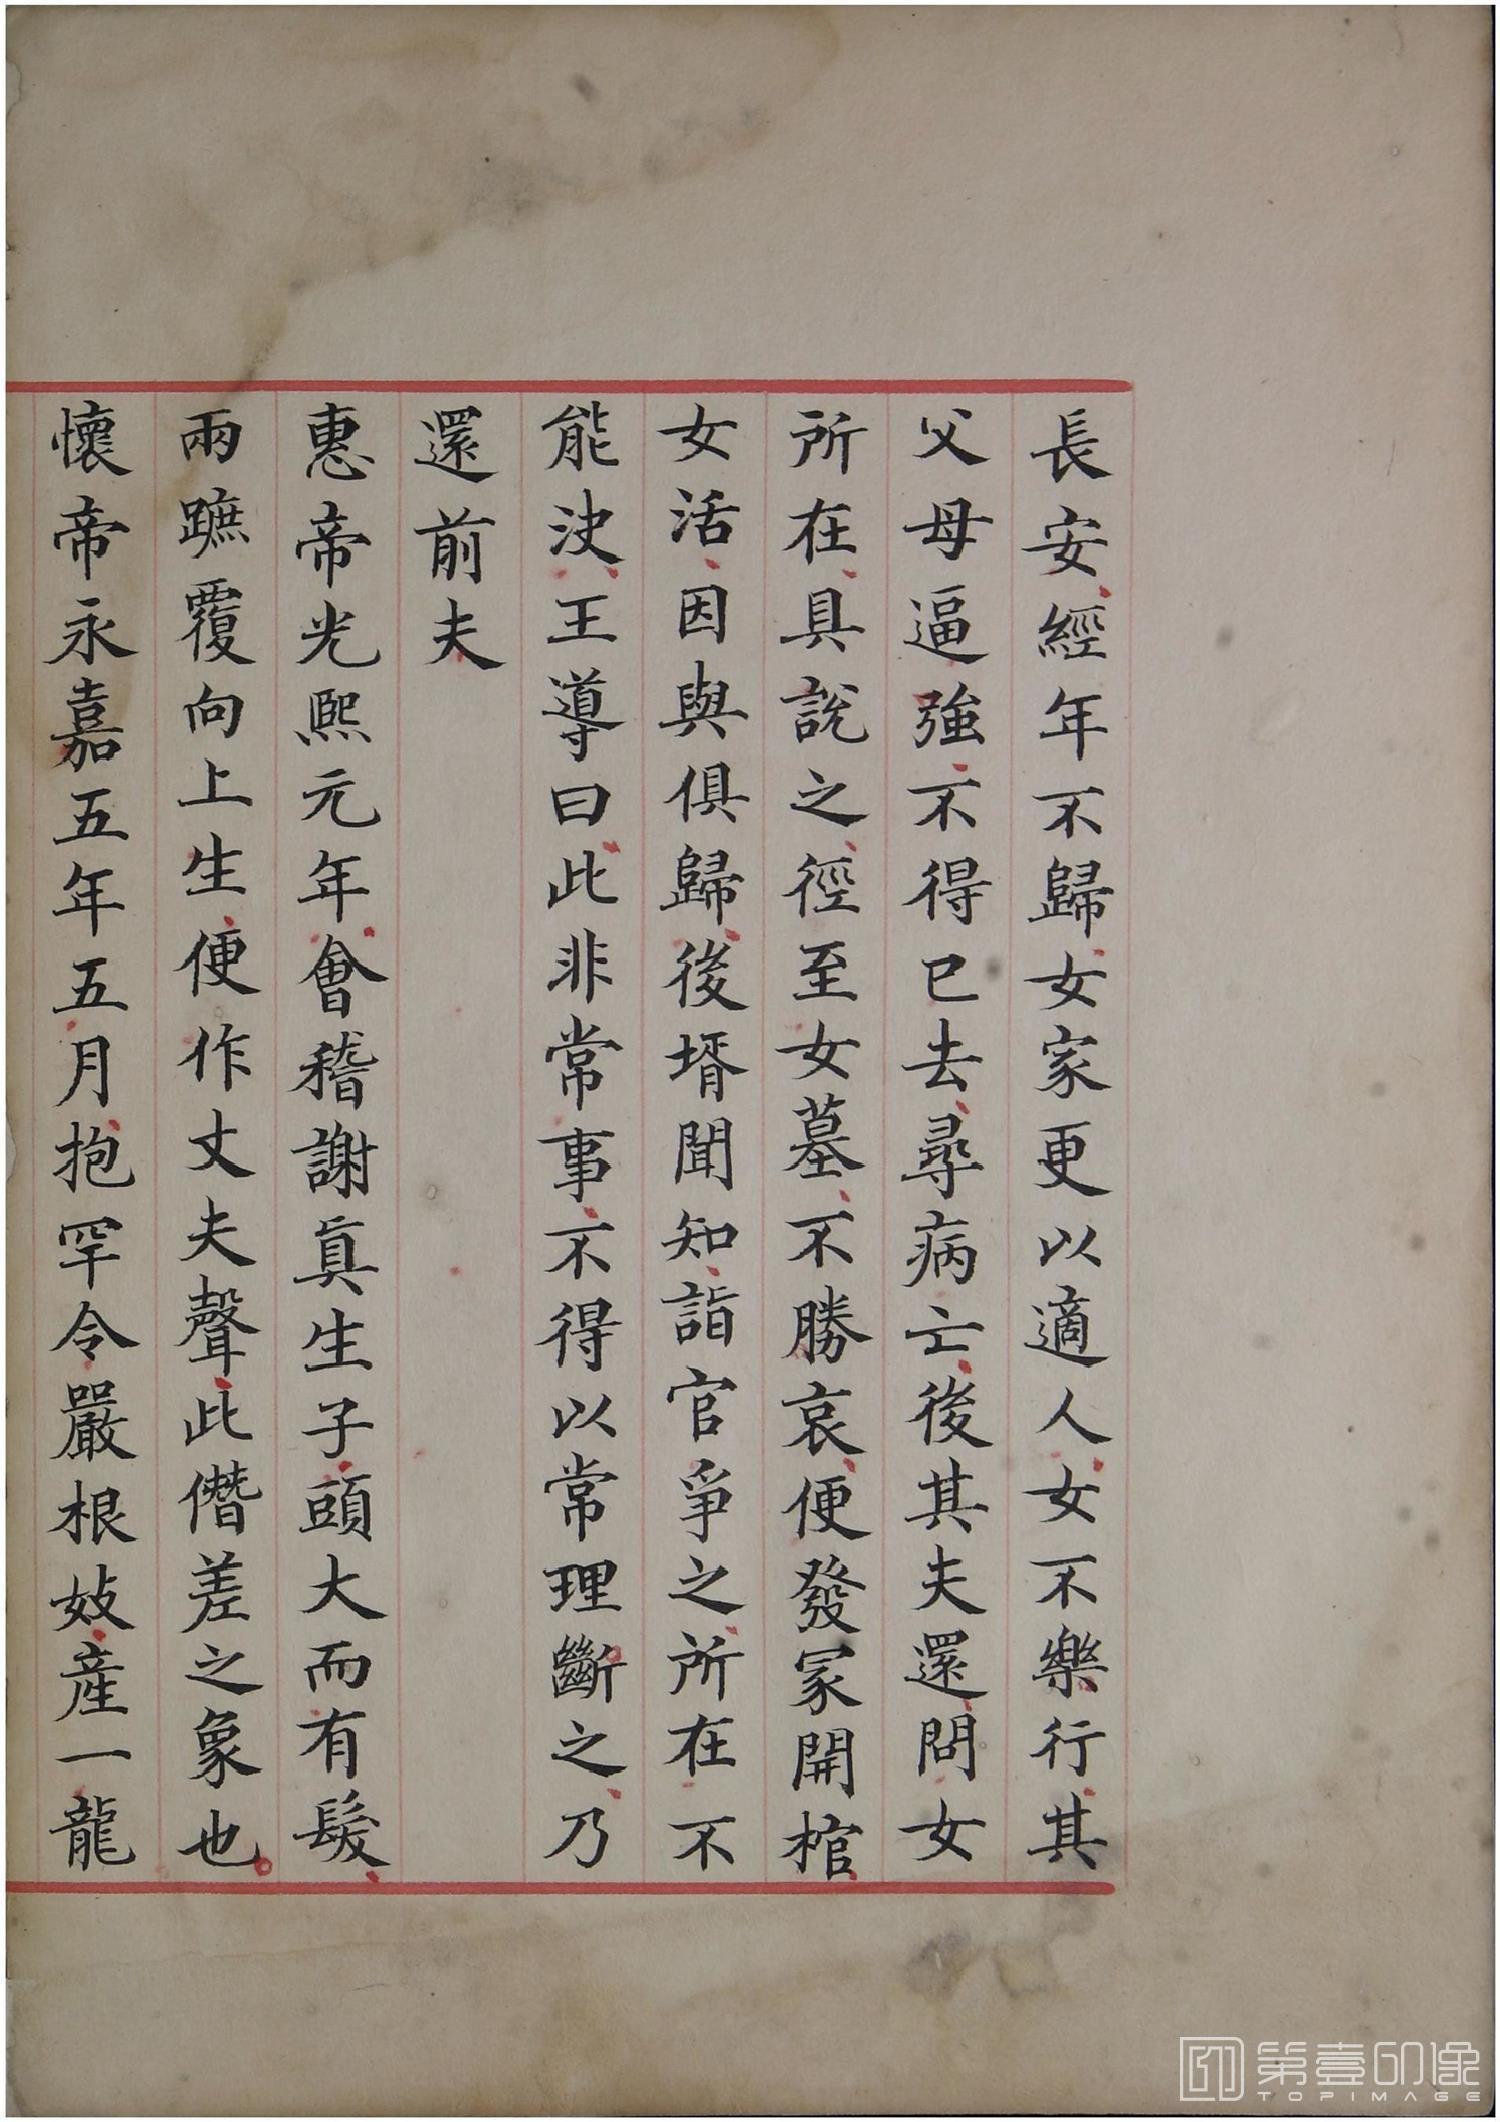 長安經年不歸女家更以適人女不樂行其
父母逼強不得已去尋病亡後其夫還問女
所在具說之徑至女墓不勝哀便發冢開棺
女活因與俱歸後壻聞知詣官爭之所在不
能決王導曰此非常事不得以常理斷之乃
還前夫
惠帝光熙元年會稽謝真生子頭大而有髮
兩蹠覆向上生便作丈夫聲此僭差之象也
懷帝永嘉五年五月抱罕令嚴根妓產一龍
第壹印像
TOPIMAGE